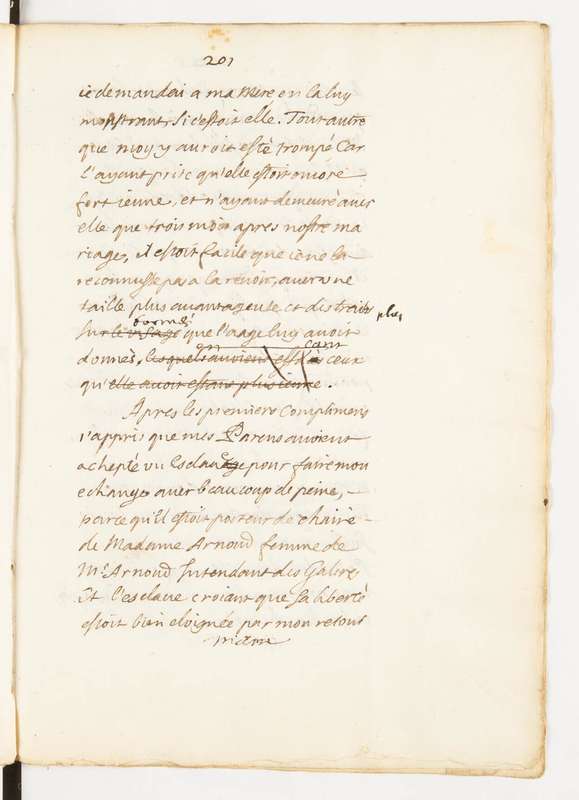 201
ie demandai a ma Mere en la luy
monstrant, si c'estoit elle. Tout autre
que moy y auroit esté trompé Car
l'ayant prise qu'elle estoit encore
fort ieune, et n'ayant demeuré avec
elle que trois mois apres nostre ma
riage, il estoit facile que ie ne la
reconnusse pas a la revoir, avec une
taille plus avantageuse et des traits plus
formés
sur le visage que l'aage luy avoit
donnés, lesquels avoient ceux
qu'elle avoit estant plus ieune.
Apres les premiers Complimens
i'appris que mes Parens avoient
achepté un Esclave pour faire mon
echange avec beaucoup de peine,
parce qu'il estoit porteur de chaire
de Madame Arnoud femme de
Mr. Arnoud Intendant des Galeres
Et l'esclave croiant que sa liberté
estoit bien eloignée par mon retour